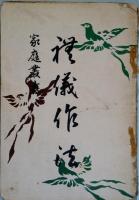 家庭叢
禮儀作法